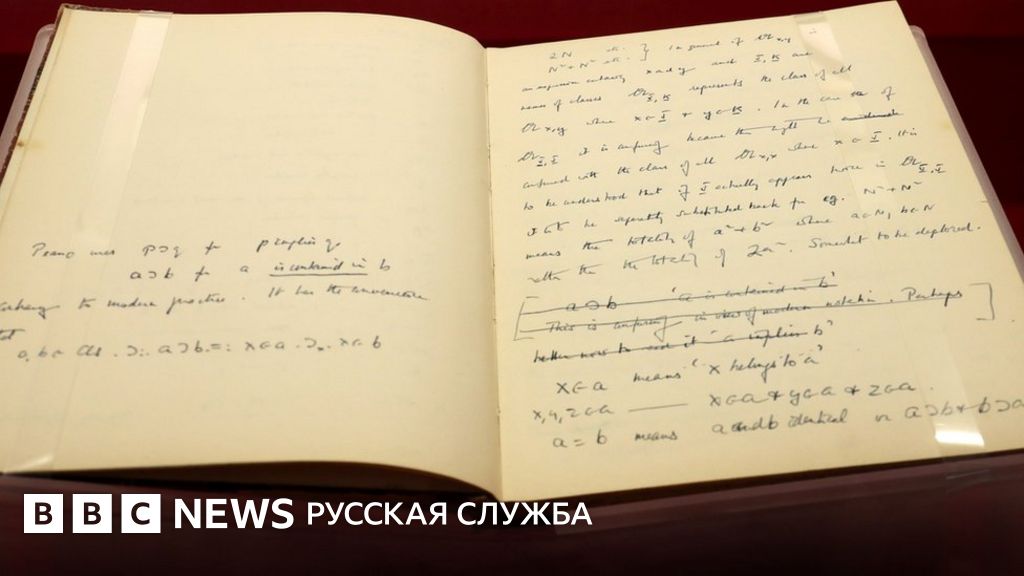 Peano uses p⊃q for p implies q
a⊃b for a is contained in b
to modern practice. It has the
a, b ∈ Cls .⊃: a⊃b .=: x∈a .⊃ₓ. x∈b
2N etc. } In general if 𝔄x,y
N²+N² etc.
an expression containing x and y and are
names of classes represents the class of all
𝔄x,y where x∈ & y∈ . In the case of
it is confusing because might be
confused with the class of all 𝔄x,x where x∈ . It is
to be understood that if actually appears twice in
it is to be separately substituted for eg. N²+N²
means the totality of a²+b² where a∈N, b∈N
rather than the totality of 2a². Somewhat to be deplored.
a⊃b 'a is contained in b'
This is confusing in view of modern notation. Perhaps
better now to read it 'a implies b'
x∈a means 'x belongs to a'
x,y,z∈a —— x∈a & y∈a & z∈a.
a = b means a and b identical or a⊃b & b⊃a
BBC NEWS РУССКАЯ СЛУЖБА